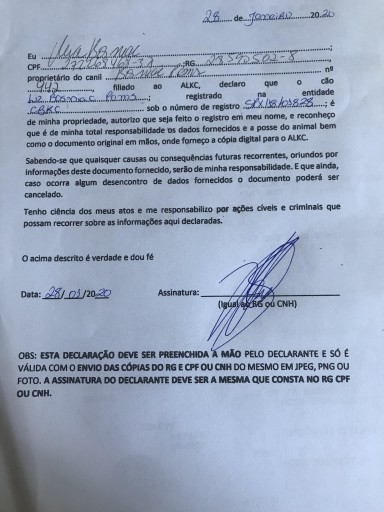 28 de Janeiro 20 20
Eu Ilza Bosnac ;
CPF 277268468-32 ;RG 28592502-8
proprietário do canil Bosnac Poms nº
942, filiado ao ALKC, declaro que o cão
Bosnac Poms; registrado na entidade
CBKC sob o número de registro ; é
de minha propriedade, autorizo que seja feito o registro em meu nome, e reconheço
que é de minha total responsabilidade os dados fornecidos e a posse do animal bem
como o documento original em mãos, onde forneço a cópia digital para o ALKC.
Sabendo-se que quaisquer causas ou consequências futuras recorrentes, oriundos por
informações deste documento fornecido, serão de minha responsabilidade. E que ainda,
caso ocorra algum desencontro de dados fornecidos o documento poderá ser
cancelado.
Tenho ciência dos meus atos e me responsabilizo por ações cíveis e criminais que
possam recorrer sobre as informações aqui declaradas.
O acima descrito é verdade e dou fé
Data: 28/01/2020 Assinatura:
(Igual ao RG ou CNH)
OBS: ESTA DECLARAÇÃO DEVE SER PREENCHIDA À MÃO PELO DECLARANTE E SÓ É
VÁLIDA COM O ENVIO DAS CÓPIAS DO RG E CPF OU CNH DO MESMO EM JPEG, PNG OU
FOTO. A ASSINATURA DO DECLARANTE DEVE SER A MESMA QUE CONSTA NO RG CPF
OU CNH.